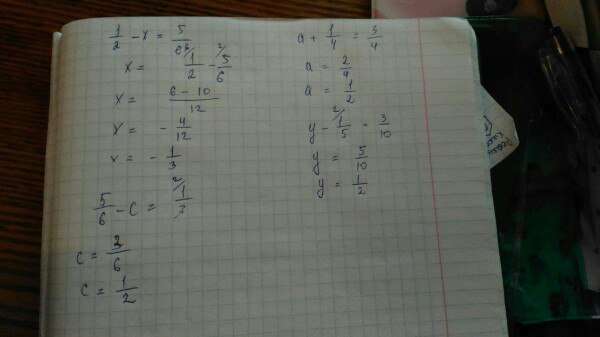 1/2 - x = 5/6
x = 1/2 - 5/6
x = 6 - 10/12
x = - 4/12
x = - 1/3
5/6 - c = 1/3
c = 2/6
c = 1/2
a + 1/4 = 3/4
a = 2/4
a = 1/2
y - 1/5 = 3/10
y = 5/10
y = 1/2